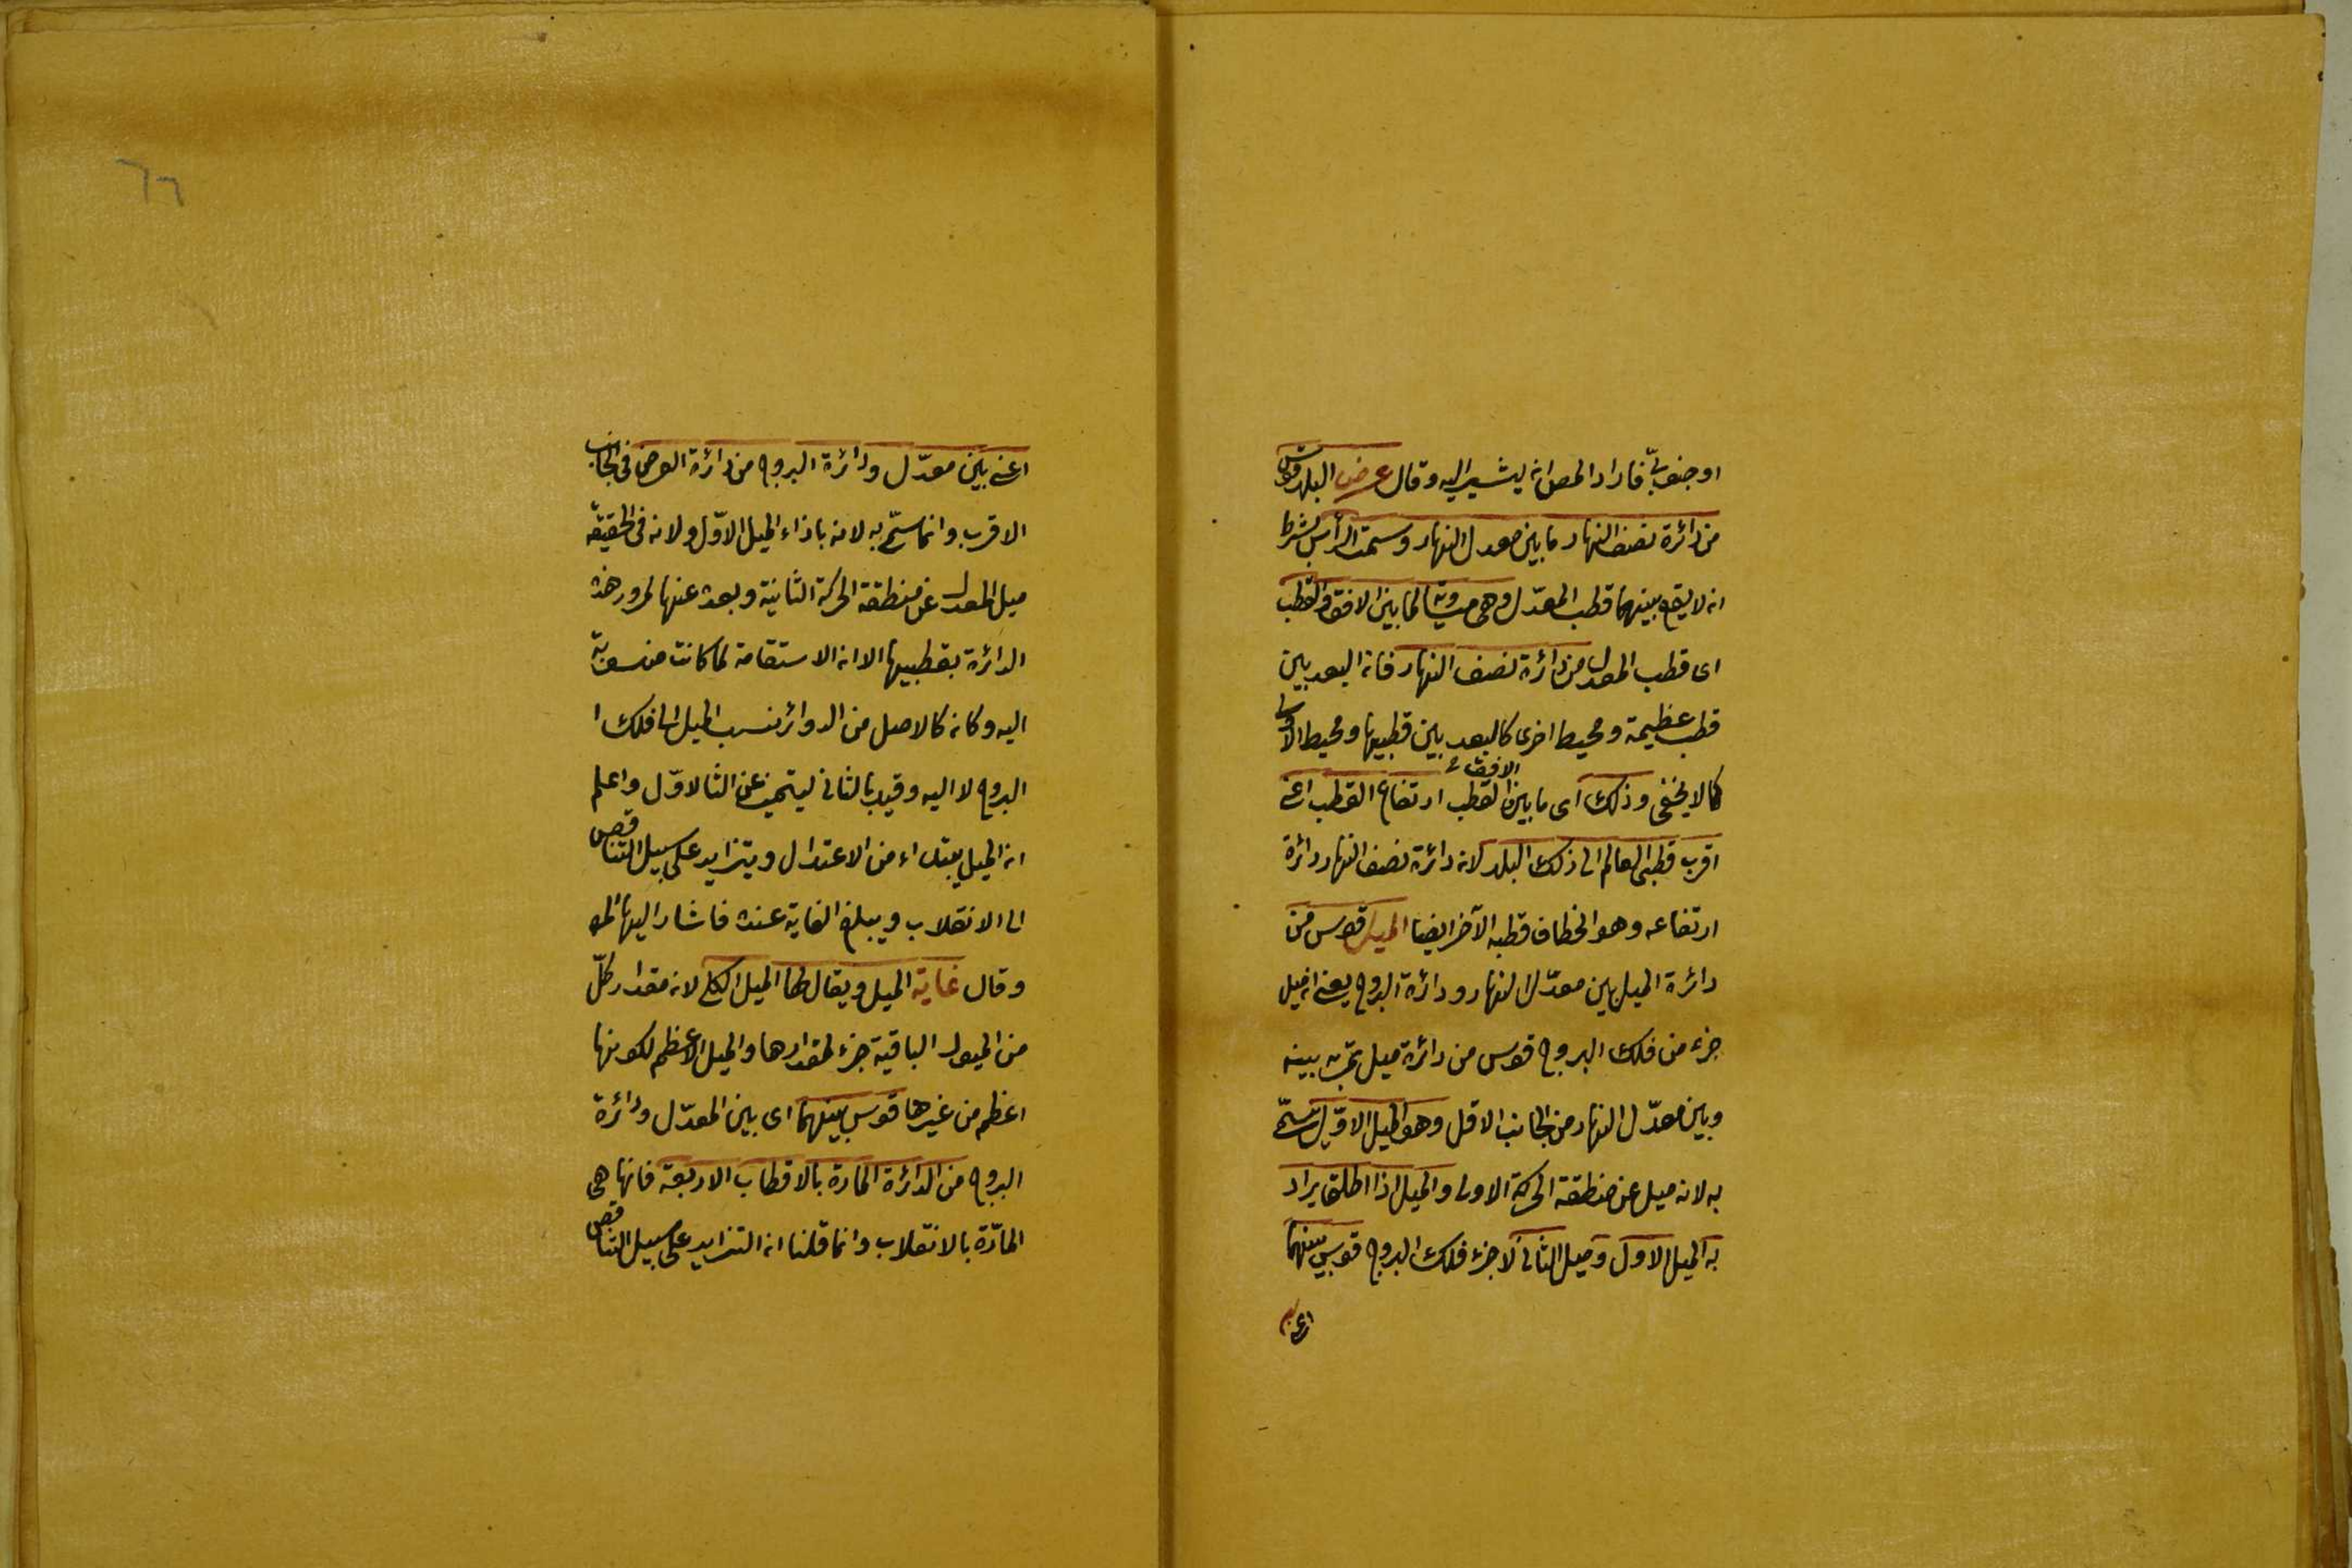 او جنوبىّ فاراد المص ان يشير اليه وقال عرض البلد قوس
من دائرة نصف النهار ما بين معدل النهار وسمت الرأس بشرط
ان لا يقع بينهما قطب المعدّل وهى مساوية لما بين الافق والقطب
اى قطب المعدل من دائرة نصف النهار فان البعد بين
قطب عظيمة ومحيط اخرى كالبعد بين قطبيها ومحيط الاولى
كما لا يخفى وذلك اى ما بين القطب الافق و ارتفاع القطب اعنى
اقرب قطبى العالم الى ذلك البلد لان دائرة نصف النهار دائرة
ارتفاعه وهو انحطاف قطبه الآخر ايضا الميل قوس من
دائرة الميل بين معدّل النهار ودائرة البروج يعنى ان ميل
جزء من فلك البروج قوس من دائرة ميل تمر به بينه
وبين معدّل النهار من الجانب الاقل وهو الميل الاوّل يسمّى
به لانه ميل عن منطقة الحركة الاولى والميل اذا اطلق يراد
به الميل الاول وميل الثانى لاجزء فلك البروج قوس بينهما
اعنى
٦٦
اعنى بين معدّل ودائرة البروج من دائرة العرض فى الجانب
الاقرب وانما سمّى به لانه باذاء الميل الاوّل ولانه فى الحقيقة
ميل المعدل عن منطقة الحركة الثانية وبعده عنها لمرور هذه
الدائرة بقطبيها الا ان الاستقامة لما كانت منسوبة
اليه وكان كالاصل من الدوائر نسب الميل الى فلك ا
البروج لا اليه وقيد بالثانى ليتميز عن الثا لاوّل واعلم
ان الميل يبتداء من الاعتدال ويتزايد على سبيل التناقص
الى الانقلاب ويبلغ الغاية عنده فاشار اليها المص
وقال غاية الميل ويقال لها الميل الكلى لانه مقدار كلّ
من الميول الباقية جزء لمقدارها والميل الاعظم لكونها
اعظم من غيرها قوس بينهما اى بين المعدّل ودائرة
البروج من الدائرة المارة بالاقطاب الاربعة فانها هى
المارّة بالانقلاب وانما قلنا ان التزايد على سبيل التناقص